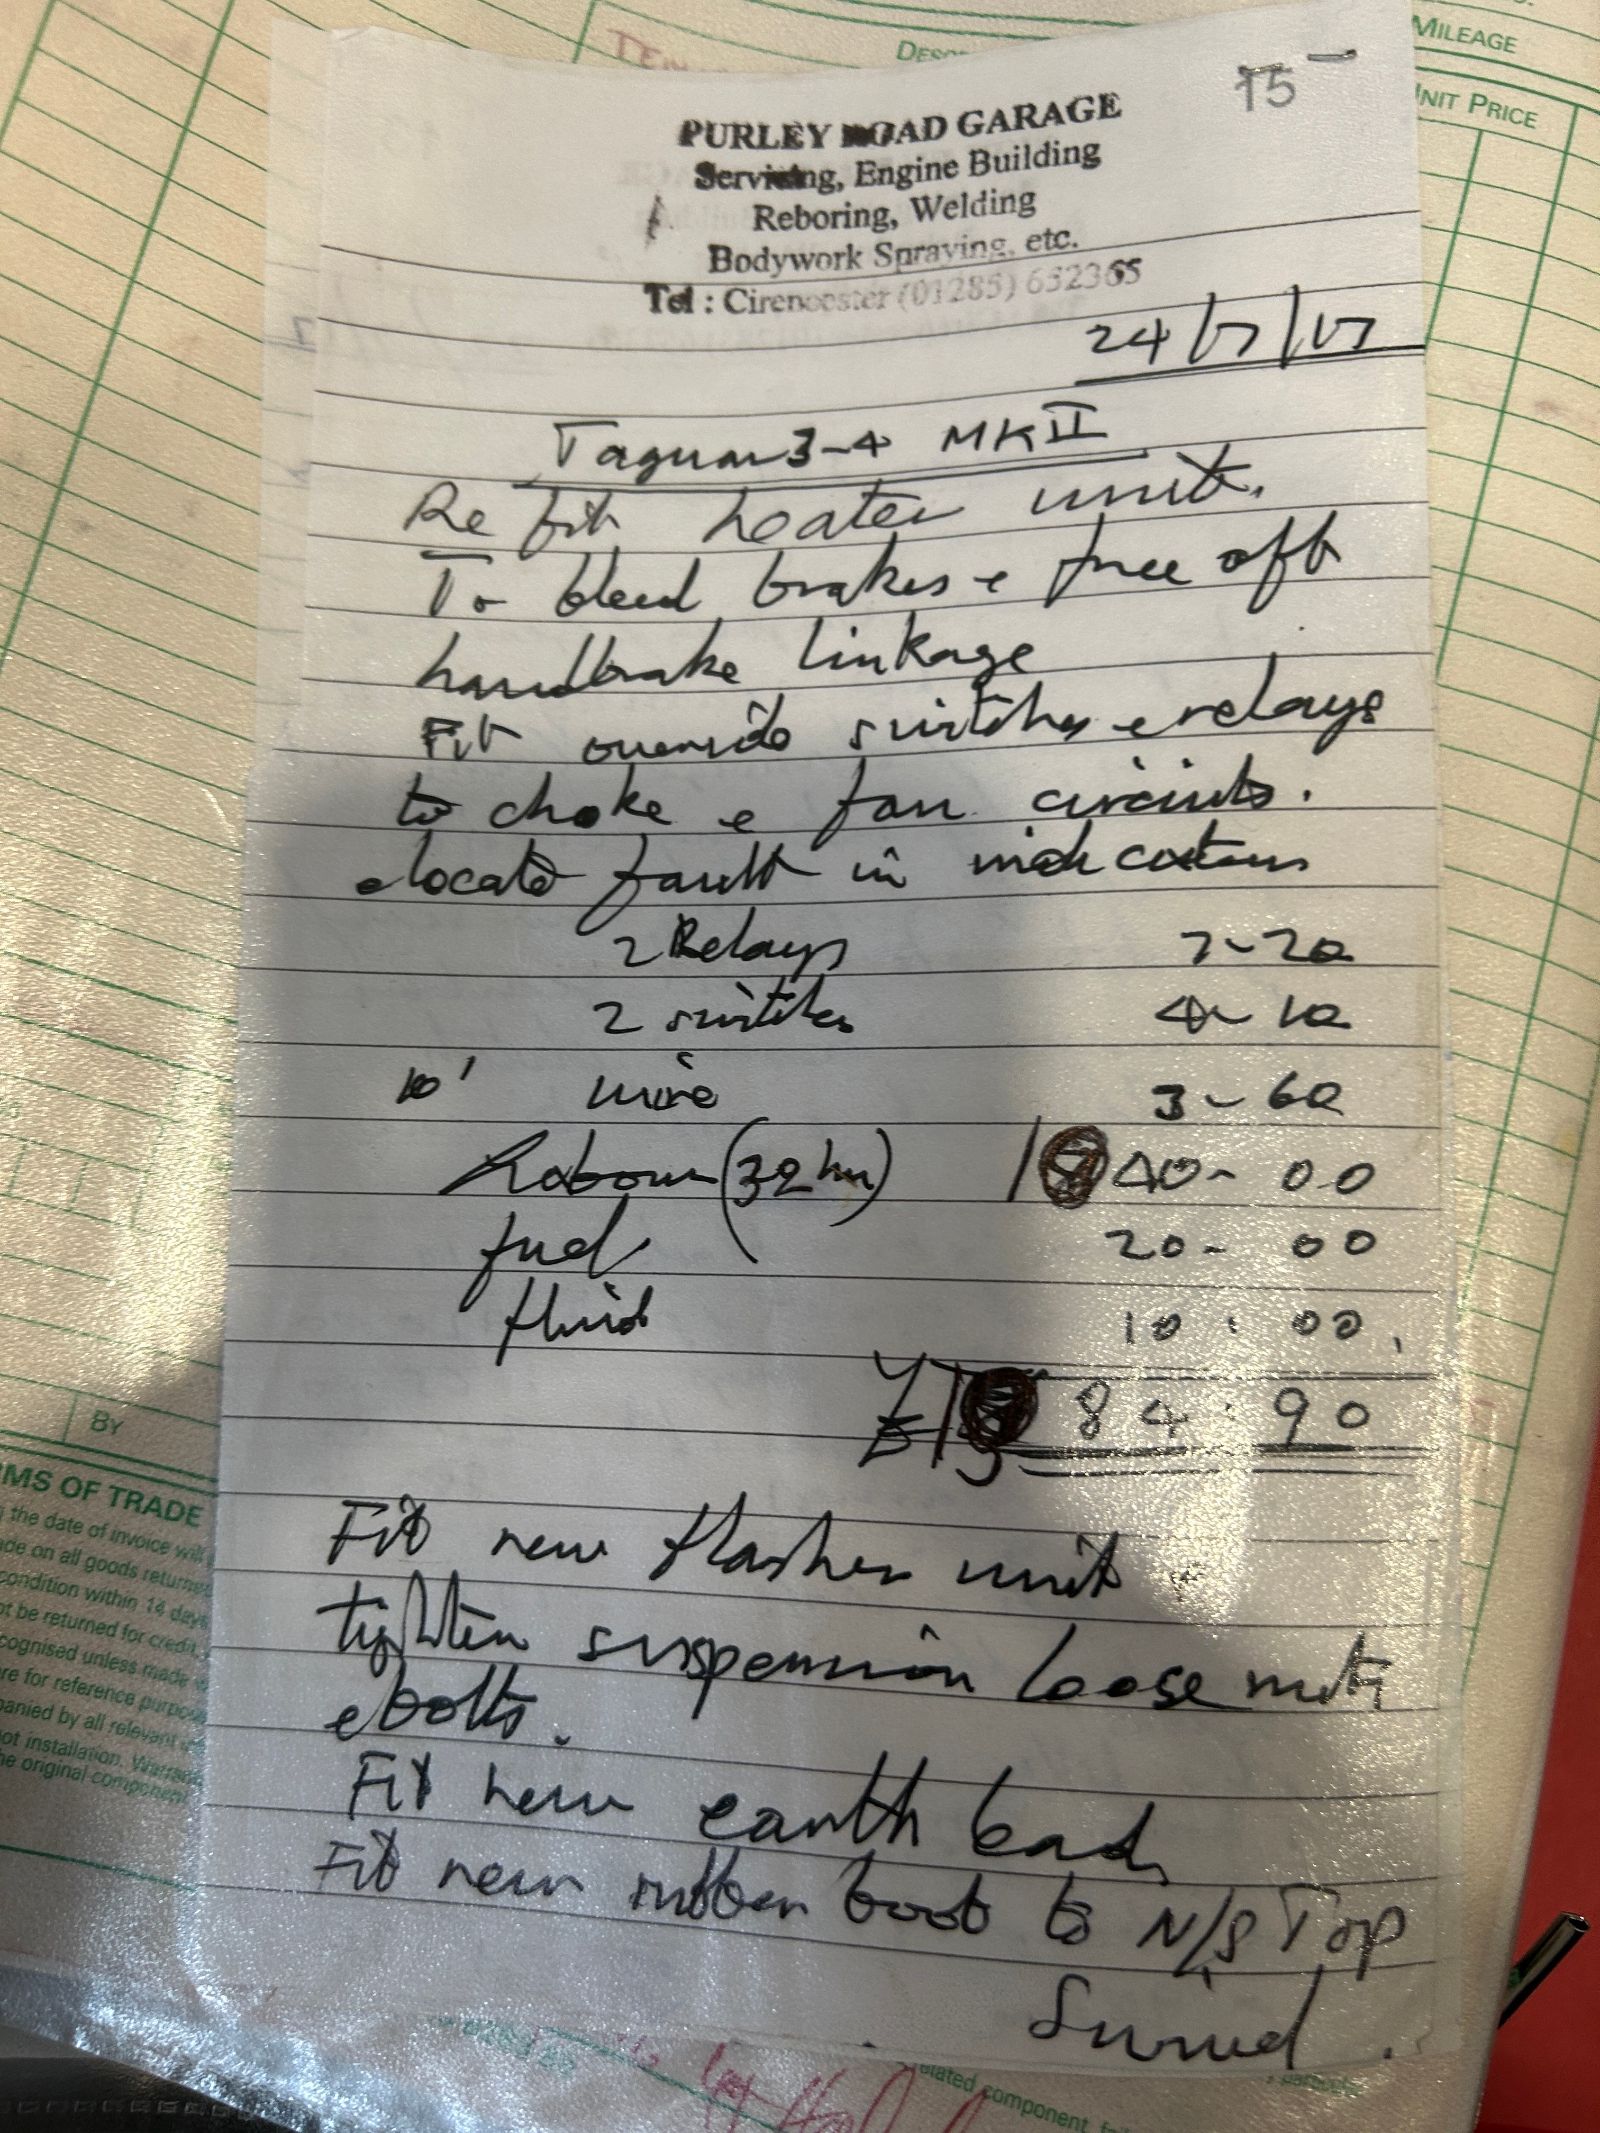 MILEAGE
UNIT PRICE
75 -
PURLEY ROAD GARAGE
Servicing, Engine Building
Reboring, Welding
Bodywork Spraying, etc.
Tel : Cirencester (01285) 652365
24/7/17
Jaguar 3-4 MK II
Re fit heater unit.
To bleed brakes e free off
handbrake linkage
Fit override switches e relays
to choke e fan circuits.
e locate fault in indicators
2 Relays 7-20
2 switches 4-10
10' wire 3-60
Labour (32 hr) 1 40-00
fuel 20-00
fluid 10:00.
£1 84:90
Fit new flasher unit
tighten suspension loose nuts
e bolts.
Fit new earth lead,
Fit new rubber boot to N/S Top
Swivel.
BY
RMS OF TRADE
the date of invoice will
ade on all goods returned
condition within 14 days
ot be returned for credit
cognised unless made
re for reference purpos
panied by all relevant
not installation. Warran
he original component
elated component
particular